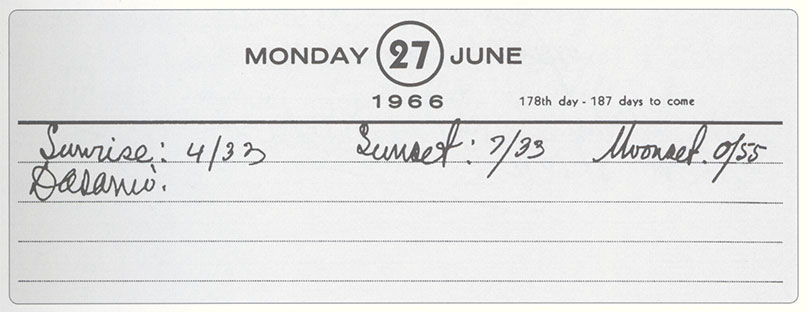 MONDAY 27 JUNE
1966 178th day - 187 days to come
Sunrise: 4/33 Sunset: 7/33 Moonset. 0/55
Dasami.